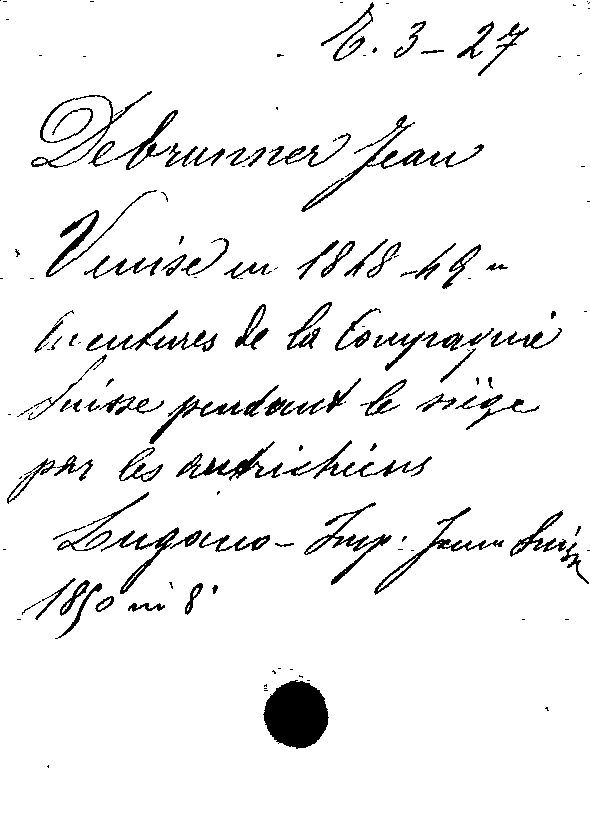 E. 3-27
Debrunner Jean
Venise en 1848-49 -
Aventures de la Compagnie
Suisse pendant le siège
par les autrichiens
Lugano - Imp.
1850 in 8°